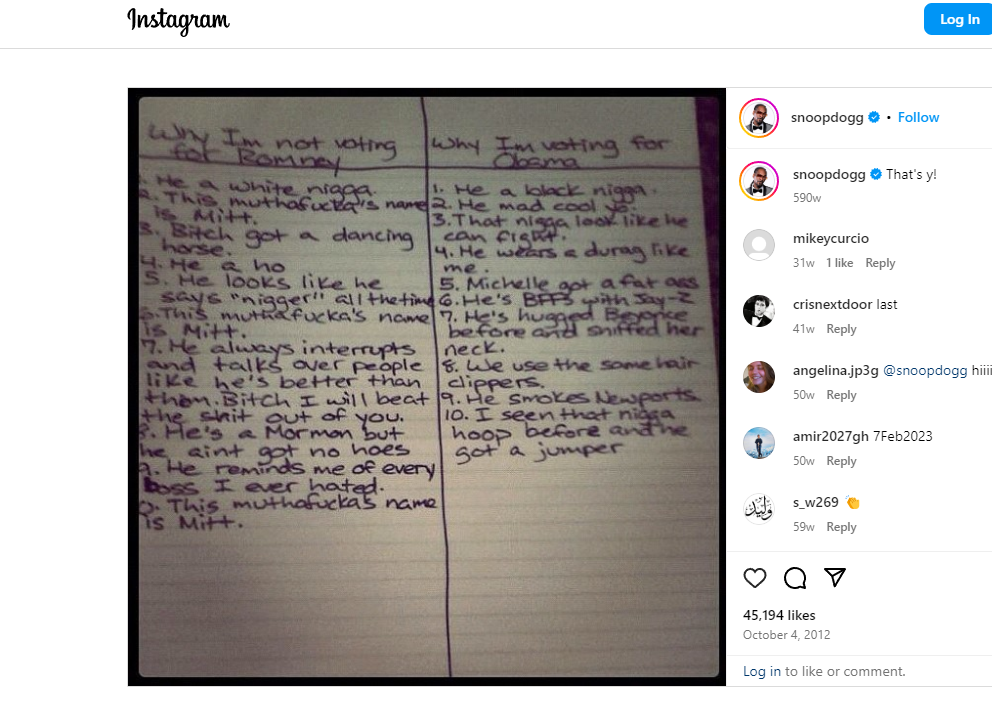 Instagram
Log In
Why I'm not voting
for Romney
1. He a white nigga.
2. This muthafucka's name
is Mitt.
3. Bitch got a dancing
horse.
4. He a ho
5. He looks like he
says "nigger" all the time
6. This muthafucka's name
is Mitt.
7. He always interrupts
and talks over people
like he's better than
them. Bitch I will beat
the shit out of you.
8. He's a Mormon but
he aint got no hoes
9. He reminds me of every
boss I ever hated.
0. This muthafucka's name
is Mitt.
Why I'm voting for
Obama
1. He a black nigga.
2. He mad cool yo.
3. That nigga look like he
can fight.
4. He wears a durag like
me.
5. Michelle got a fat ass
6. He's BFFs with Jay-Z
7. He's hugged Beyonce
before and sniffed her
neck.
8. We use the same hair
clippers.
9. He smokes Newports.
10. I seen that nigga
hoop before and he
got a jumper
snoopdogg • Follow
snoopdogg That's y!
590w
mikeycurcio
31w 1 like Reply
crisnextdoor last
41w Reply
angelina.jp3g @snoopdogg hiiii
50w Reply
amir2027gh 7Feb2023
50w Reply
وليد
s_w269 👏
59w Reply
45,194 likes
October 4, 2012
Log in to like or comment.